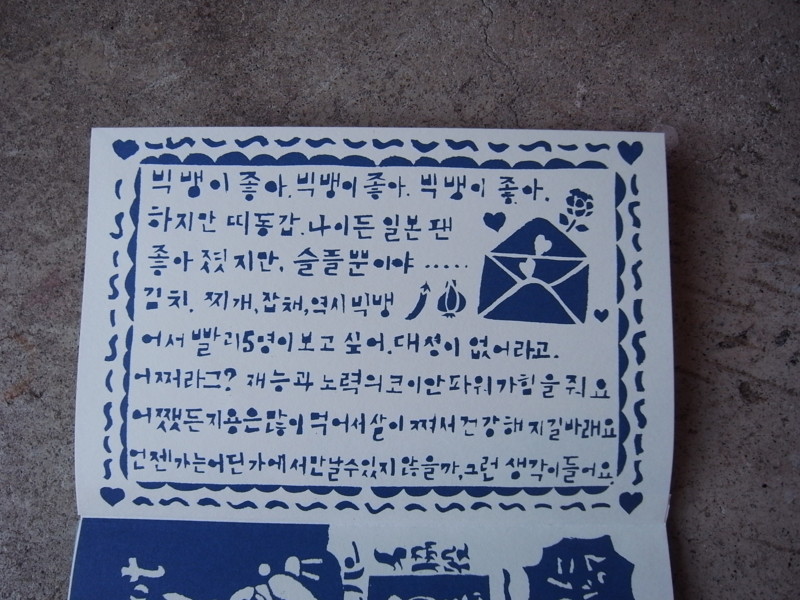 빅뱅이 좋아.빅뱅이 좋아. 빅뱅이 좋아.
하지만 띠동갑.나이든 일본 팬
좋아 졌지만, 슬플뿐이야 .....
김치. 찌개,잡채,역시 빅뱅
어서 빨리5명이보고 싶어.대성이 없어라고.
어쩌라그? 재능과 노력의코이안파워가힘을줘요
어쨌든지용은많이 먹어서살이쪄서건강해지길바래요
언젠가는어딘가에서만날수있지않을까,그런 생각이들어요